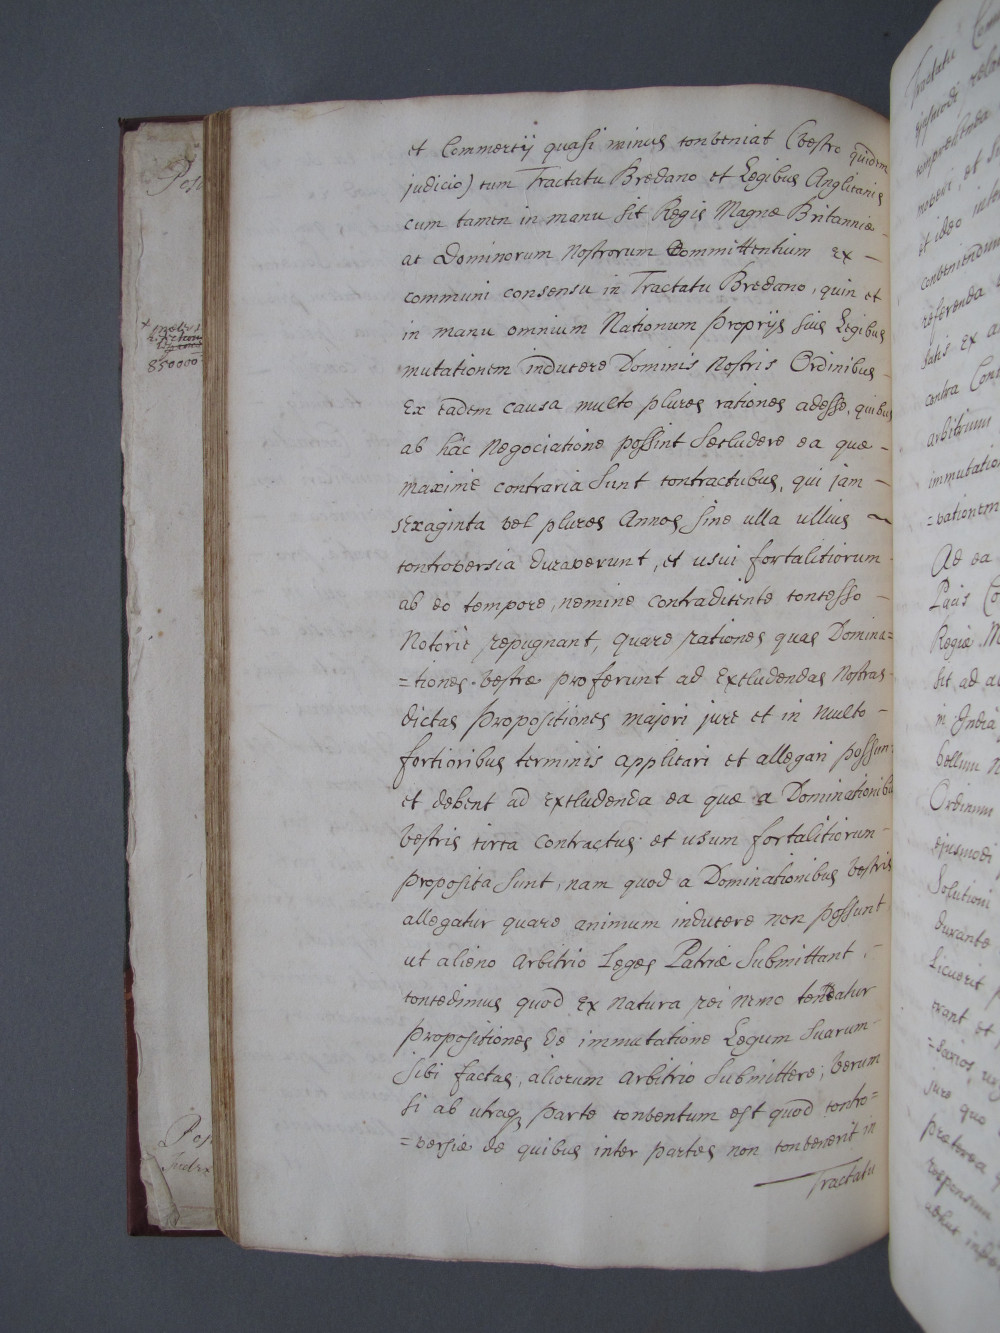 et Commertij quasi minus conveniat (vestro quidem
judicio) cum Tractatu Bredano et Legibus Anglicanis
cum tamen in manu sit Regis Magnæ Britanniæ -
ac Dominorum Nostrorum Committentium Ex -
communi consensu in Tractatu Bredano, quin et
in manu omnium Nationum proprijs suis Legibus
mutationem inducere Dominis Nostris Ordinibus -
Ex eadem causa multo plures rationes adesse, quibus
ab hâc Negociatione possint secludere ea quæ -
maximè contraria sunt contractubus, qui jam -
sexaginta vel plures Annos sine ulla ullius ~
controversia duraverunt, et usui fortalitiorum -
ab eo tempore, nemine contradicente concesso -
Notoriè repugnant, quare rationes quas Domina=
=tiones vestræ proferunt ad Excludendas Nostras -
dictas propositiones majori jure et in multo -
fortioribus terminis applicari et allegari possunt
et debent ad Excludenda ea quæ a Dominationibus
vestris circa Contractus et usum fortalitiorum -
proposita sunt, nam quod a Dominationibus vestris
allegatur quare animum inducere non possunt
ut alieno Arbitrio Leges Patriæ submittant, -
concedimus quod Ex natura rei nemo teneatur
propositiones de immutatione Legum suarum -
sibi factas, aliorum arbitrio submittere, verum
si ab utraq parte conventum est quod contro=
=versiæ de quibus inter partes non convenerit in
Tractatu
850000
Tractatu
ejusmodi
et ideo
referenda
satis Ex
contra
arbitrium
immutation
=vationem
Ad ea
Pacis
Regiæ
sit ad
in India
bellum
Ordinum
ejusmodi
Solutioni
durante
Licuerit
jure quo
præterea
responsum